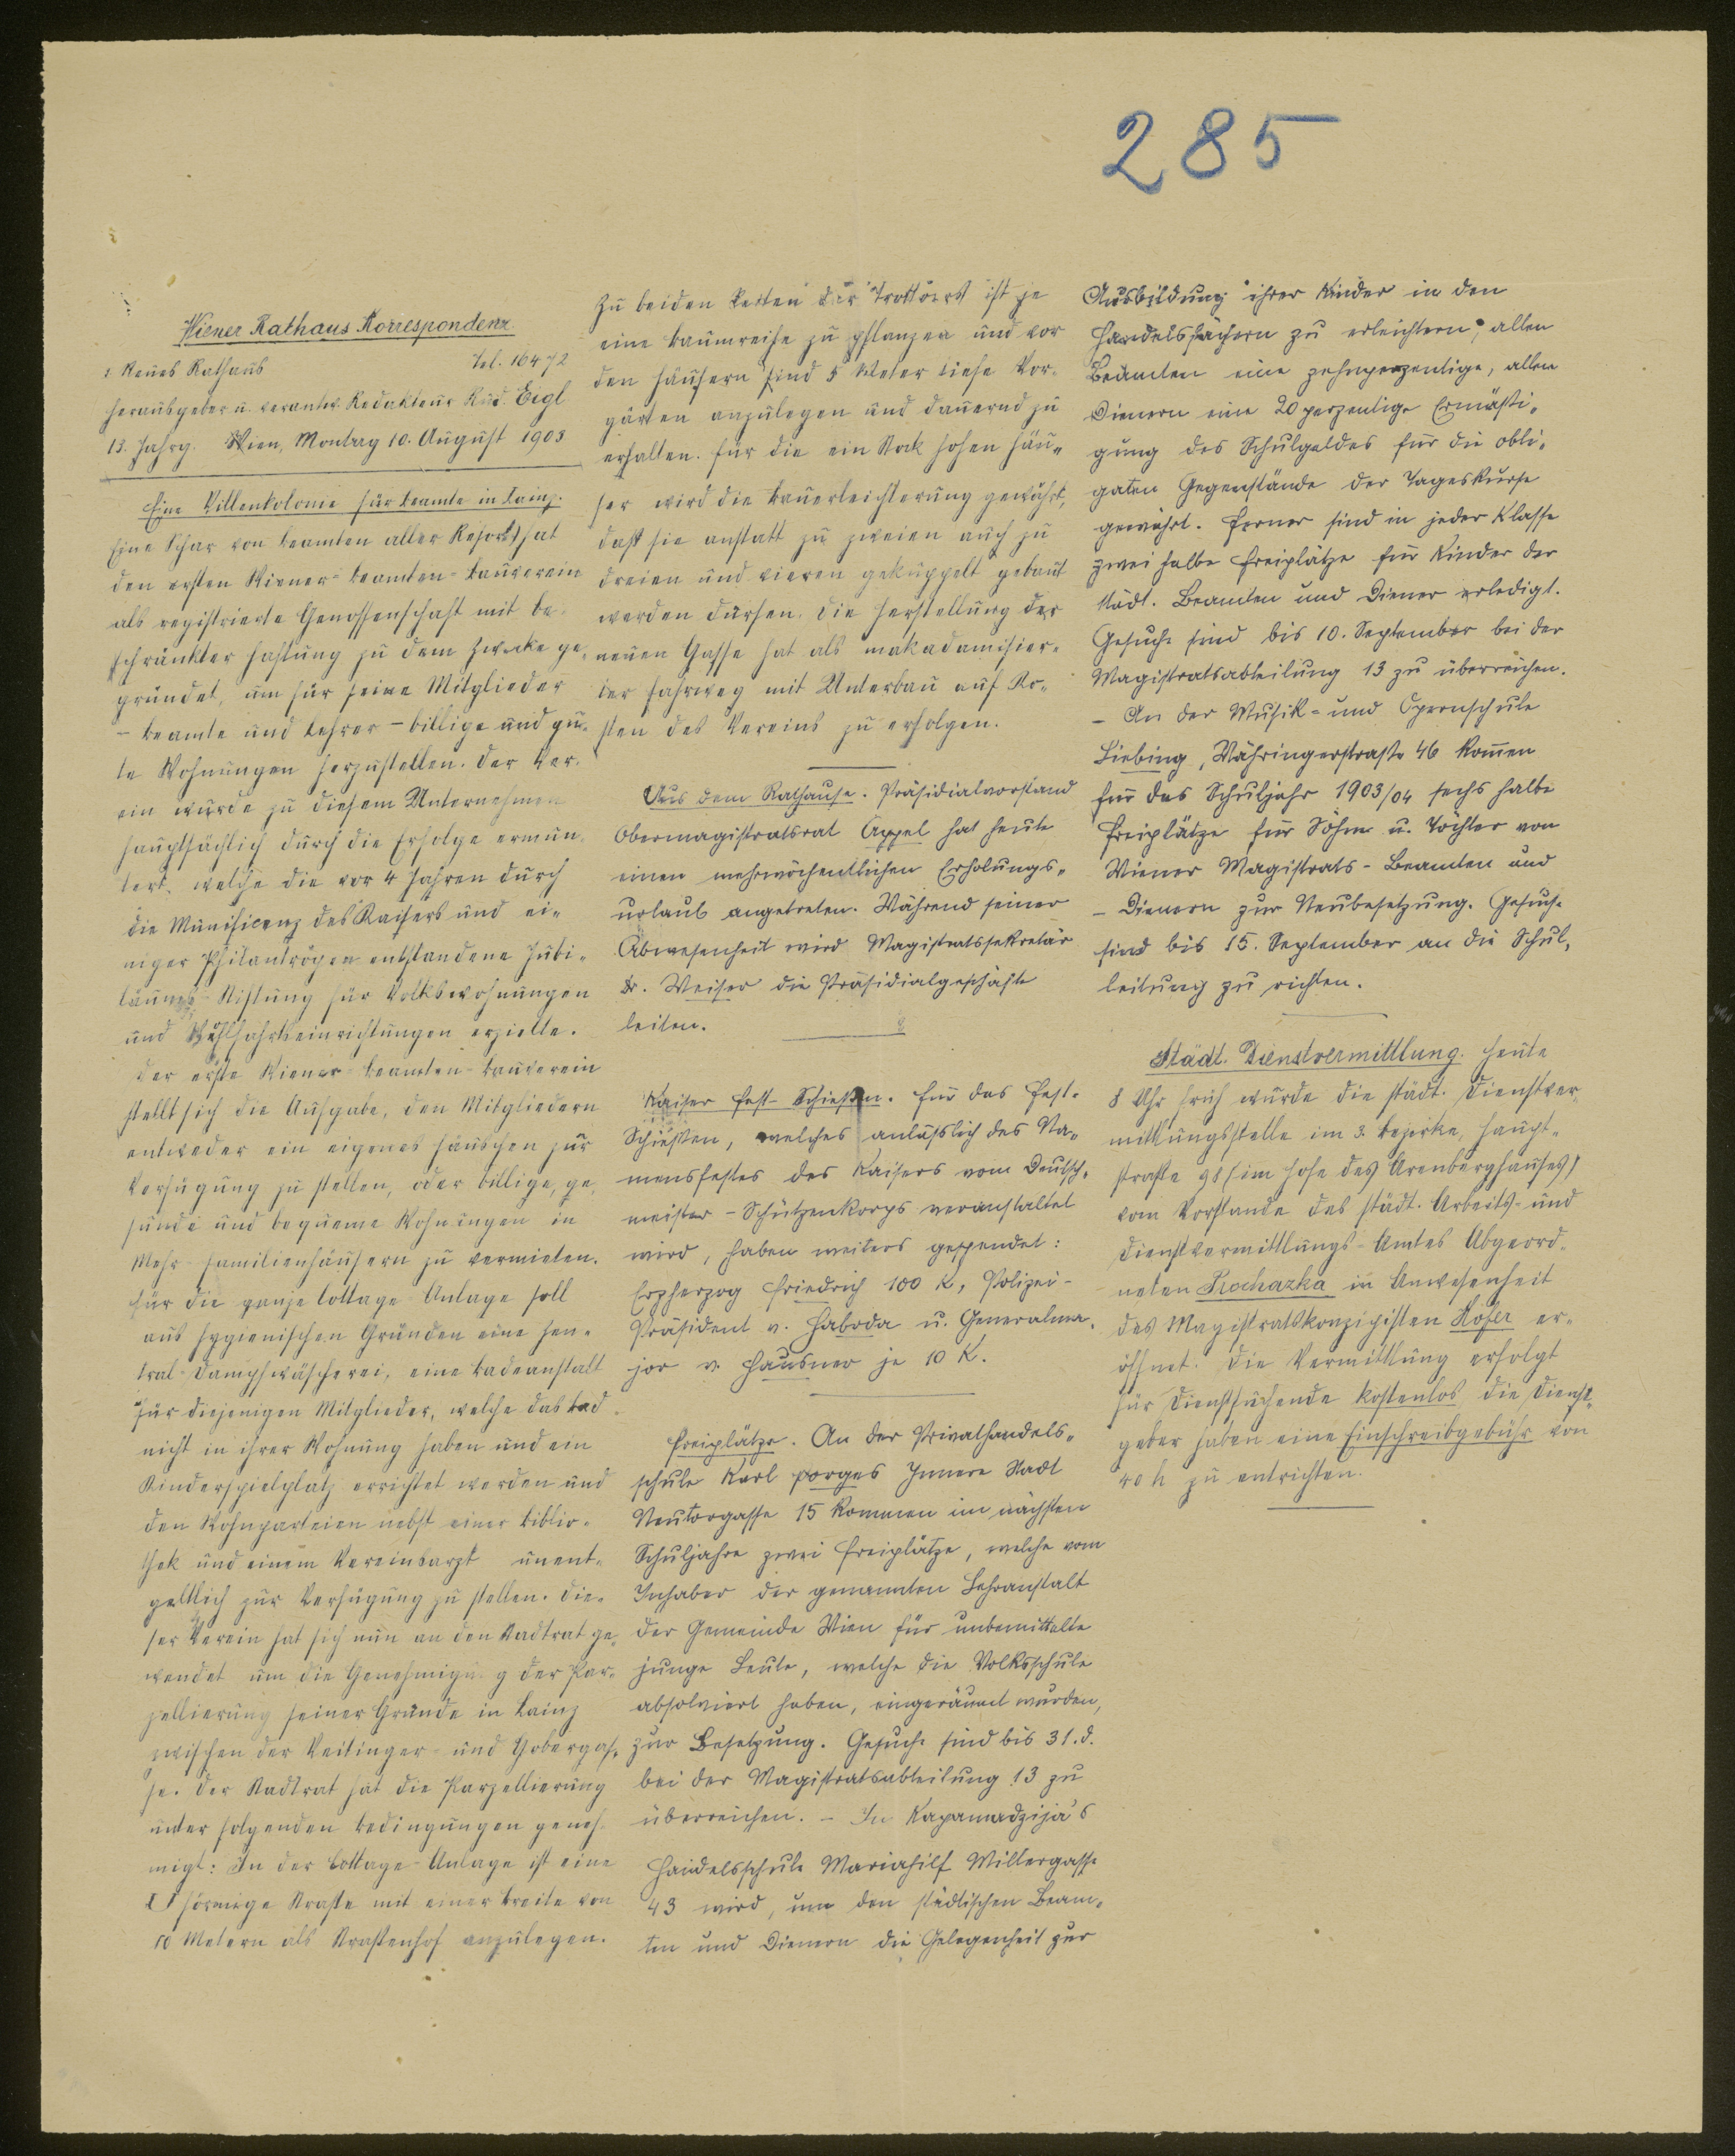 285
Wiener Rathaus Korrespondenz
1. Neues Rathaus Tel. 16472
Herausgeber u. verantw. Redakteur Rud. Eigl
13. Jahrg. Wien, Montag 10. August 1903
Eine Villenkolonie für Beamte in Lainz.
Eine Schar von Beamten aller Ressorts hat
den ersten Wiener-Beamten-Bauverein
als registrierte Genossenschaft mit be-
schränkter Haftung zu dem Zwecke ge-
gründet, um für seine Mitglieder
- Beamte und Lehrer - billige und gu-
te Wohnungen herzustellen. Der Ver-
ein wurde zu diesem Unternehmen
hauptsächlich durch die Erfolge ermun-
tert, welche die vor 4 Jahren durch
die Munificenz des Kaisers und ei-
niger Philantropen entstandene Jubi-
läums-Stiftung für Volkswohnungen
und Wohlfahrtseinrichtungen erzielte.
Der erste Wiener Beamten-Bauverein
stellt sich die Aufgabe, den Mitgliedern
entweder ein eigenes Häuschen zur
Verfügung zu stellen, oder billige, ge-
sunde und bequeme Wohnungen in
Mehr-Familienhäusern zu vermieten.
Für die ganze Cottage-Anlage soll
aus hygienischen Gründen eine Zen-
tral-Dampfwäscherei, eine Badeanstalt
für diejenigen Mitglieder, welche das Bad
nicht in ihrer Wohnung haben und ein
Kinderspielplatz errichtet werden und
den Wohnparteien nebst einer Biblio-
thek und einem Vereinsarzt unent-
geltlich zur Verfügung zu stellen. Die-
ser Verein hat sich nun an den Stadtrat ge-
wendet um die Genehmigung der Par-
zellierung seiner Gründe in Lainz
zwischen der Veitinger- und Gobergas-
se. Der Stadtrat hat die Parzellierung
unter folgenden Bedingungen geneh-
migt: In der Cottage-Anlage ist eine
U förmige Straße mit einer Breite von
10 Metern als Straßenhof anzulegen.
Zu beiden Seiten der Trottoirs ist je
eine Baumreihe zu pflanzen und vor
den Häusern sind 5 Meter tiefe Vor-
gärten anzulegen und dauernd zu
erhalten. Für die ein Stock hohen Häu-
ser wird die Bauerleichterung gewährt,
daß sie anstatt zu zweien auch zu
dreien und vieren gekuppelt gebaut
werden dürfen. Die Herstellung der
neuen Gasse hat als makadamisier-
ter Fahrweg mit Unterbau auf Ko-
sten des Vereins zu erfolgen.
Aus dem Rathause. Präsidialvorstand
Obermagistratsrat Appel hat heute
einen mehrwöchentlichen Erholungs-
urlaub angetreten. Während seiner
Abwesenheit wird Magistratssekretär
Dr. Weiser die Präsidialgeschäfte
leiten.
Kaiser Fest-Schießen. Für das Fest-
Schießen, welches anläßlich des Na-
mensfestes des Kaisers vom Deutsch-
meister-Schützenkorps veranstaltet
wird, haben weiters gespendet:
Erzherzog Friedrich 100 K, Polizei-
Präsident v. Habrda u. Generalma-
jor v. Hausner je 10 K.
Freiplätze. An der Privathandels-
schule Karl Porges Innere Stadt
Neutorgasse 15 kommen im nächsten
Schuljahre zwei Freiplätze, welche vom
Inhaber der genannten Lehranstalt
der Gemeinde Wien für unbemittelte
junge Leute, welche die Volksschule
absolviert haben, eingeräumt wurden,
zur Besetzung. Gesuche sind bis 31. d.
bei der Magistratsabteilung 13 zu
überreichen. - In Kapamadzija's
Handelsschule Mariahilf Millergasse
43 wird, um den städtischen Beam-
ten und Dienern die Gelegenheit zur
Ausbildung ihrer Kinder in den
Handelsfächern zu erleichtern, allen
Beamten eine zehnperzentige, allen
Dienern eine 20 perzentige Ermäßi-
gung des Schulgeldes für die obli-
gaten Gegenstände der Tageskurse
gewährt. Ferner sind in jeder Klasse
zwei halbe Freiplätze für Kinder der
städt. Beamten und Diener erledigt.
Gesuche sind bis 10. September bei der
Magistratsabteilung 13 zu überreichen.
- An der Musik- und Opernschule
Liebing, Währingerstraße 46 kommen
für das Schuljahr 1903/04 sechs halbe
Freiplätze für Söhne u. Töchter von
Wiener Magistrats-Beamten und
- Dienern zur Neubesetzung. Gesuche
sind bis 15. September an die Schul-
leitung zu richten.
Städt. Dienstvermittlung. Heute
8 Uhr früh wurde die städt. Dienstver-
mittlungsstelle im 3. Bezirke, Haupt-
straße 98 (im Hofe des Arenberghauses)
vom Vorstande des städt. Arbeits- und
Dienstvermittlungs-Amtes Abgeord-
neten Prochazka in Anwesenheit
des Magistratskonzipisten Hofer er-
öffnet. Die Vermittlung erfolgt
für Dienstsuchende kostenlos, die Dienst-
geber haben eine Einschreibgebühr von
40 h zu entrichten.